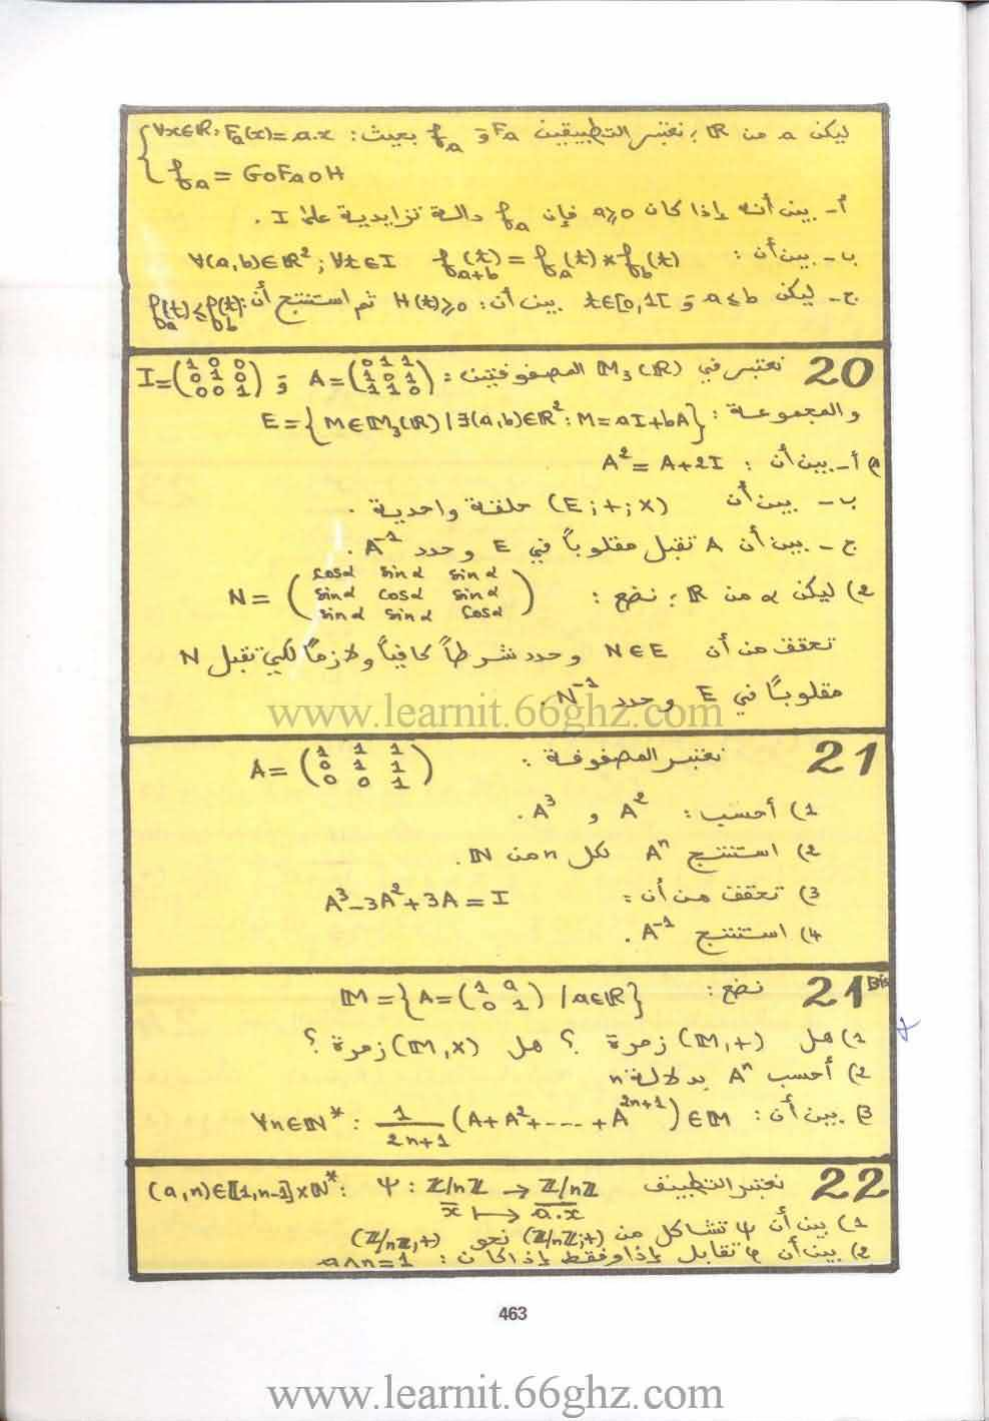 ليكن a من ℝ ؛ نعتبر التطبيقين Fₐ و fₐ بحيث : { ∀x∈ℝ ; Fₐ(x) = a.x
fₐ = G∘Fₐ∘H
أ- بين أنه إذا كان a≥0 فإن fₐ دالة تزايدية على I .
ب- بين أن : ∀(a,b)∈ℝ² ; ∀t∈I f_{a+b}(t) = f_a(t) * f_b(t)
ج- ليكن a≤b و t∈[0,1[ بين أن : H(t)≥0 ثم استنتج أن : f_a(t) ≤ f_b(t)
20 نعتبر في M₃(ℝ) المصفوفتين : A = (0 1 1 / 1 0 1 / 1 1 0) و I = (1 0 0 / 0 1 0 / 0 0 1)
والمجموعة : E = { M∈M₃(ℝ) / ∃(a,b)∈ℝ² : M = aI+bA }
1) أ- بين أن : A² = A+2I
ب- بين أن (E;+;×) حلقة واحدية .
ج- بين أن A تقبل مقلوباً في E وحدد A⁻¹ .
2) ليكن α من ℝ ؛ نضع : N = (cosα sinα sinα / sinα cosα sinα / sinα sinα cosα)
تحقق من أن N∈E وحدد شرطاً كافياً ولازماً لكي تقبل N
مقلوباً في E وحدد N⁻¹.
www.learnit.66ghz.com
21 نعتبر المصفوفة : A = (1 1 1 / 0 1 1 / 0 0 1)
1) أحسب : A² و A³ .
2) استنتج Aⁿ لكل n من ℕ .
3) تحقق من أن : A³-3A²+3A = I
4) استنتج A⁻¹ .
21 Bis نضع : M = { A = (1 a / 0 1) / a∈ℝ }
1) هل (M,+) زمرة ؟ هل (M,×) زمرة ؟
2) أحسب Aⁿ بدلالة n
3) بين أن : ∀n∈ℕ* : 1/(2n+1) (A+A²+----+A²ⁿ⁺¹) ∈ M
22 نعتبر التطبيق (a,n)∈[[1,n-1]]×ℕ* : Ψ : ℤ/nℤ → ℤ/nℤ
x̄ ⟼ a.x
1) بين أن Ψ تشاكل من (ℤ/nℤ;+) نحو (ℤ/nℤ,+)
2) بين أن φ تقابل إذا وفقط إذا كان : a∧n=1
463
www.learnit.66ghz.com